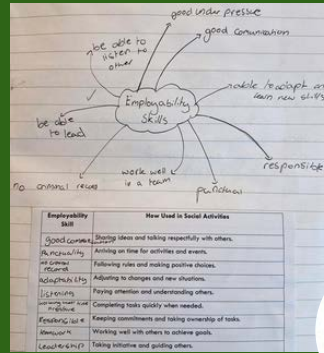 good under pressue
good comunication
be able to
listen to
other
able to adapt an
learn new skills
Employability
Skills
be able
to lead
responsible
work well
in a team
punctual
no criminal record
Employability
Skill
How Used in Social Activities
good comunication Sharing ideas and talking respectfully with others.
Punctuality Arriving on time for activities and events.
no criminal
record Following rules and making positive choices.
adaptability Adjusting to changes and new situations.
listening Paying attention and understanding others.
working well under
pressure Completing tasks quickly when needed.
Responsible Keeping commitments and taking ownership of tasks.
teamwork Working well with others to achieve goals.
Leadership Taking initiative and guiding others.